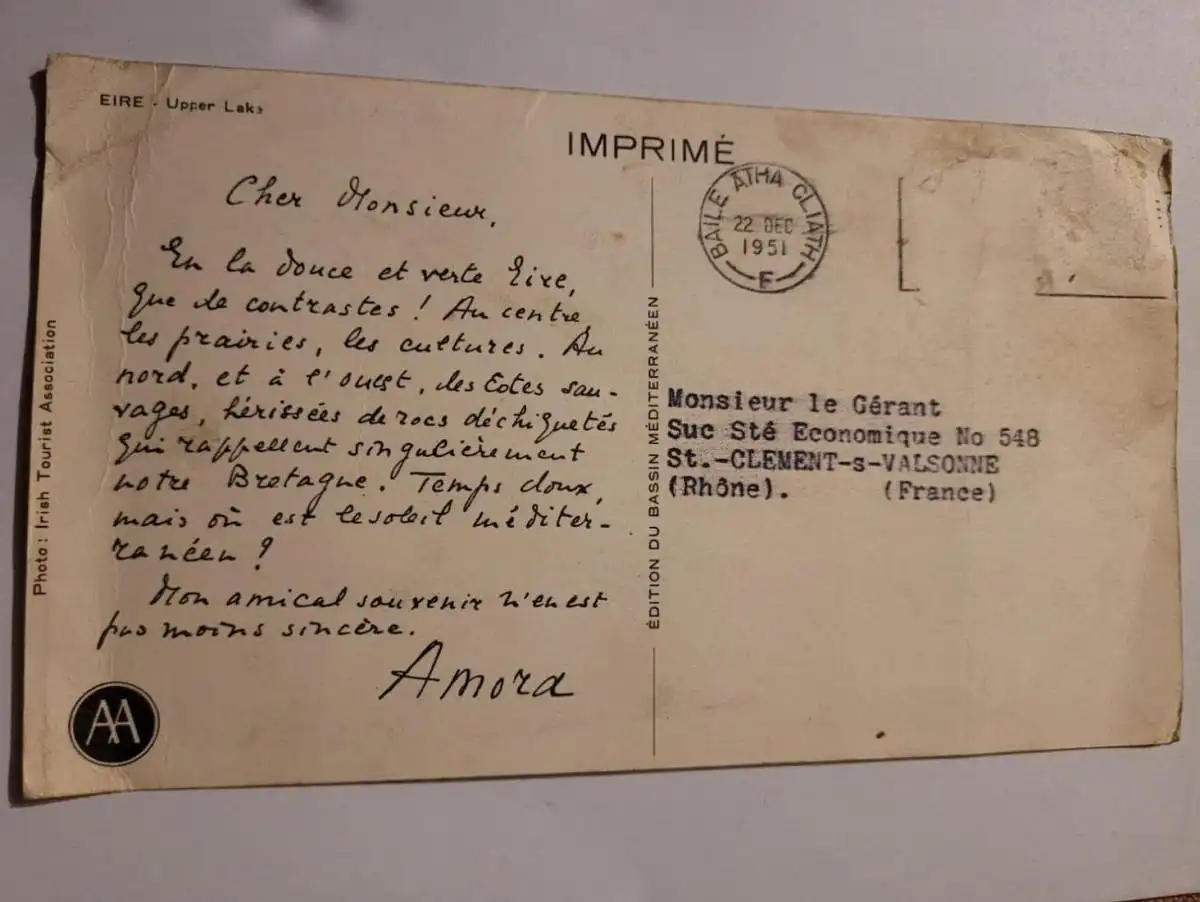 EIRE - Upper Lake
IMPRIMÉ
Cher Monsieur,
En la douce et verte Eire,
que de contrastes ! Au centre,
les prairies, les cultures. Au
nord, et à l'ouest, des Côtes sau-
vages, hérissées de rocs déchiquetés
qui rappellent singulièrement
notre Bretagne. Temps doux,
mais où est le soleil méditer-
ranéen ?
Mon amical souvenir n'en est
pas moins sincère.
Amora
AA
Photo : Irish Tourist Association
ÉDITION DU BASSIN MÉDITERRANÉEN
BAILE ATHA CLIATH
22 DEC
1951
F
Monsieur le Gérant
Suc Sté Economique No 548
St.-CLEMENT-s-VALSONNE
(Rhône). (France)